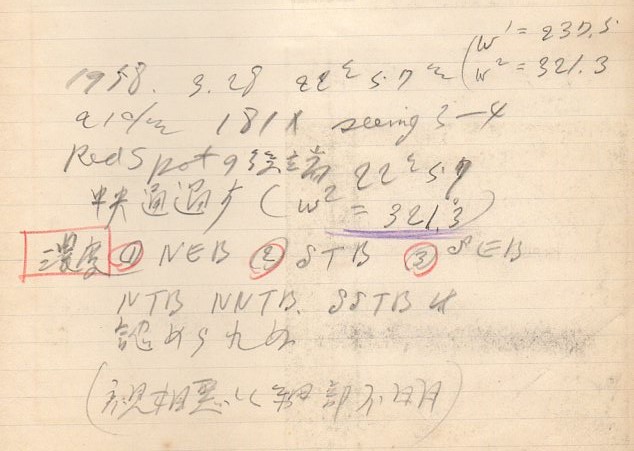 1958. 3. 28 22ʰ 57ᵐ (W¹ = 237.5
W² = 321.3
21cm 181X seeing 3-4
Red Spotの後端 22ʰ 57
中央通過す (W² = 321.3)
濃度 ① NEB ② STB ③ SEB
NTB NNTB. SSTBは
認められぬ
(視相悪く細部不明)